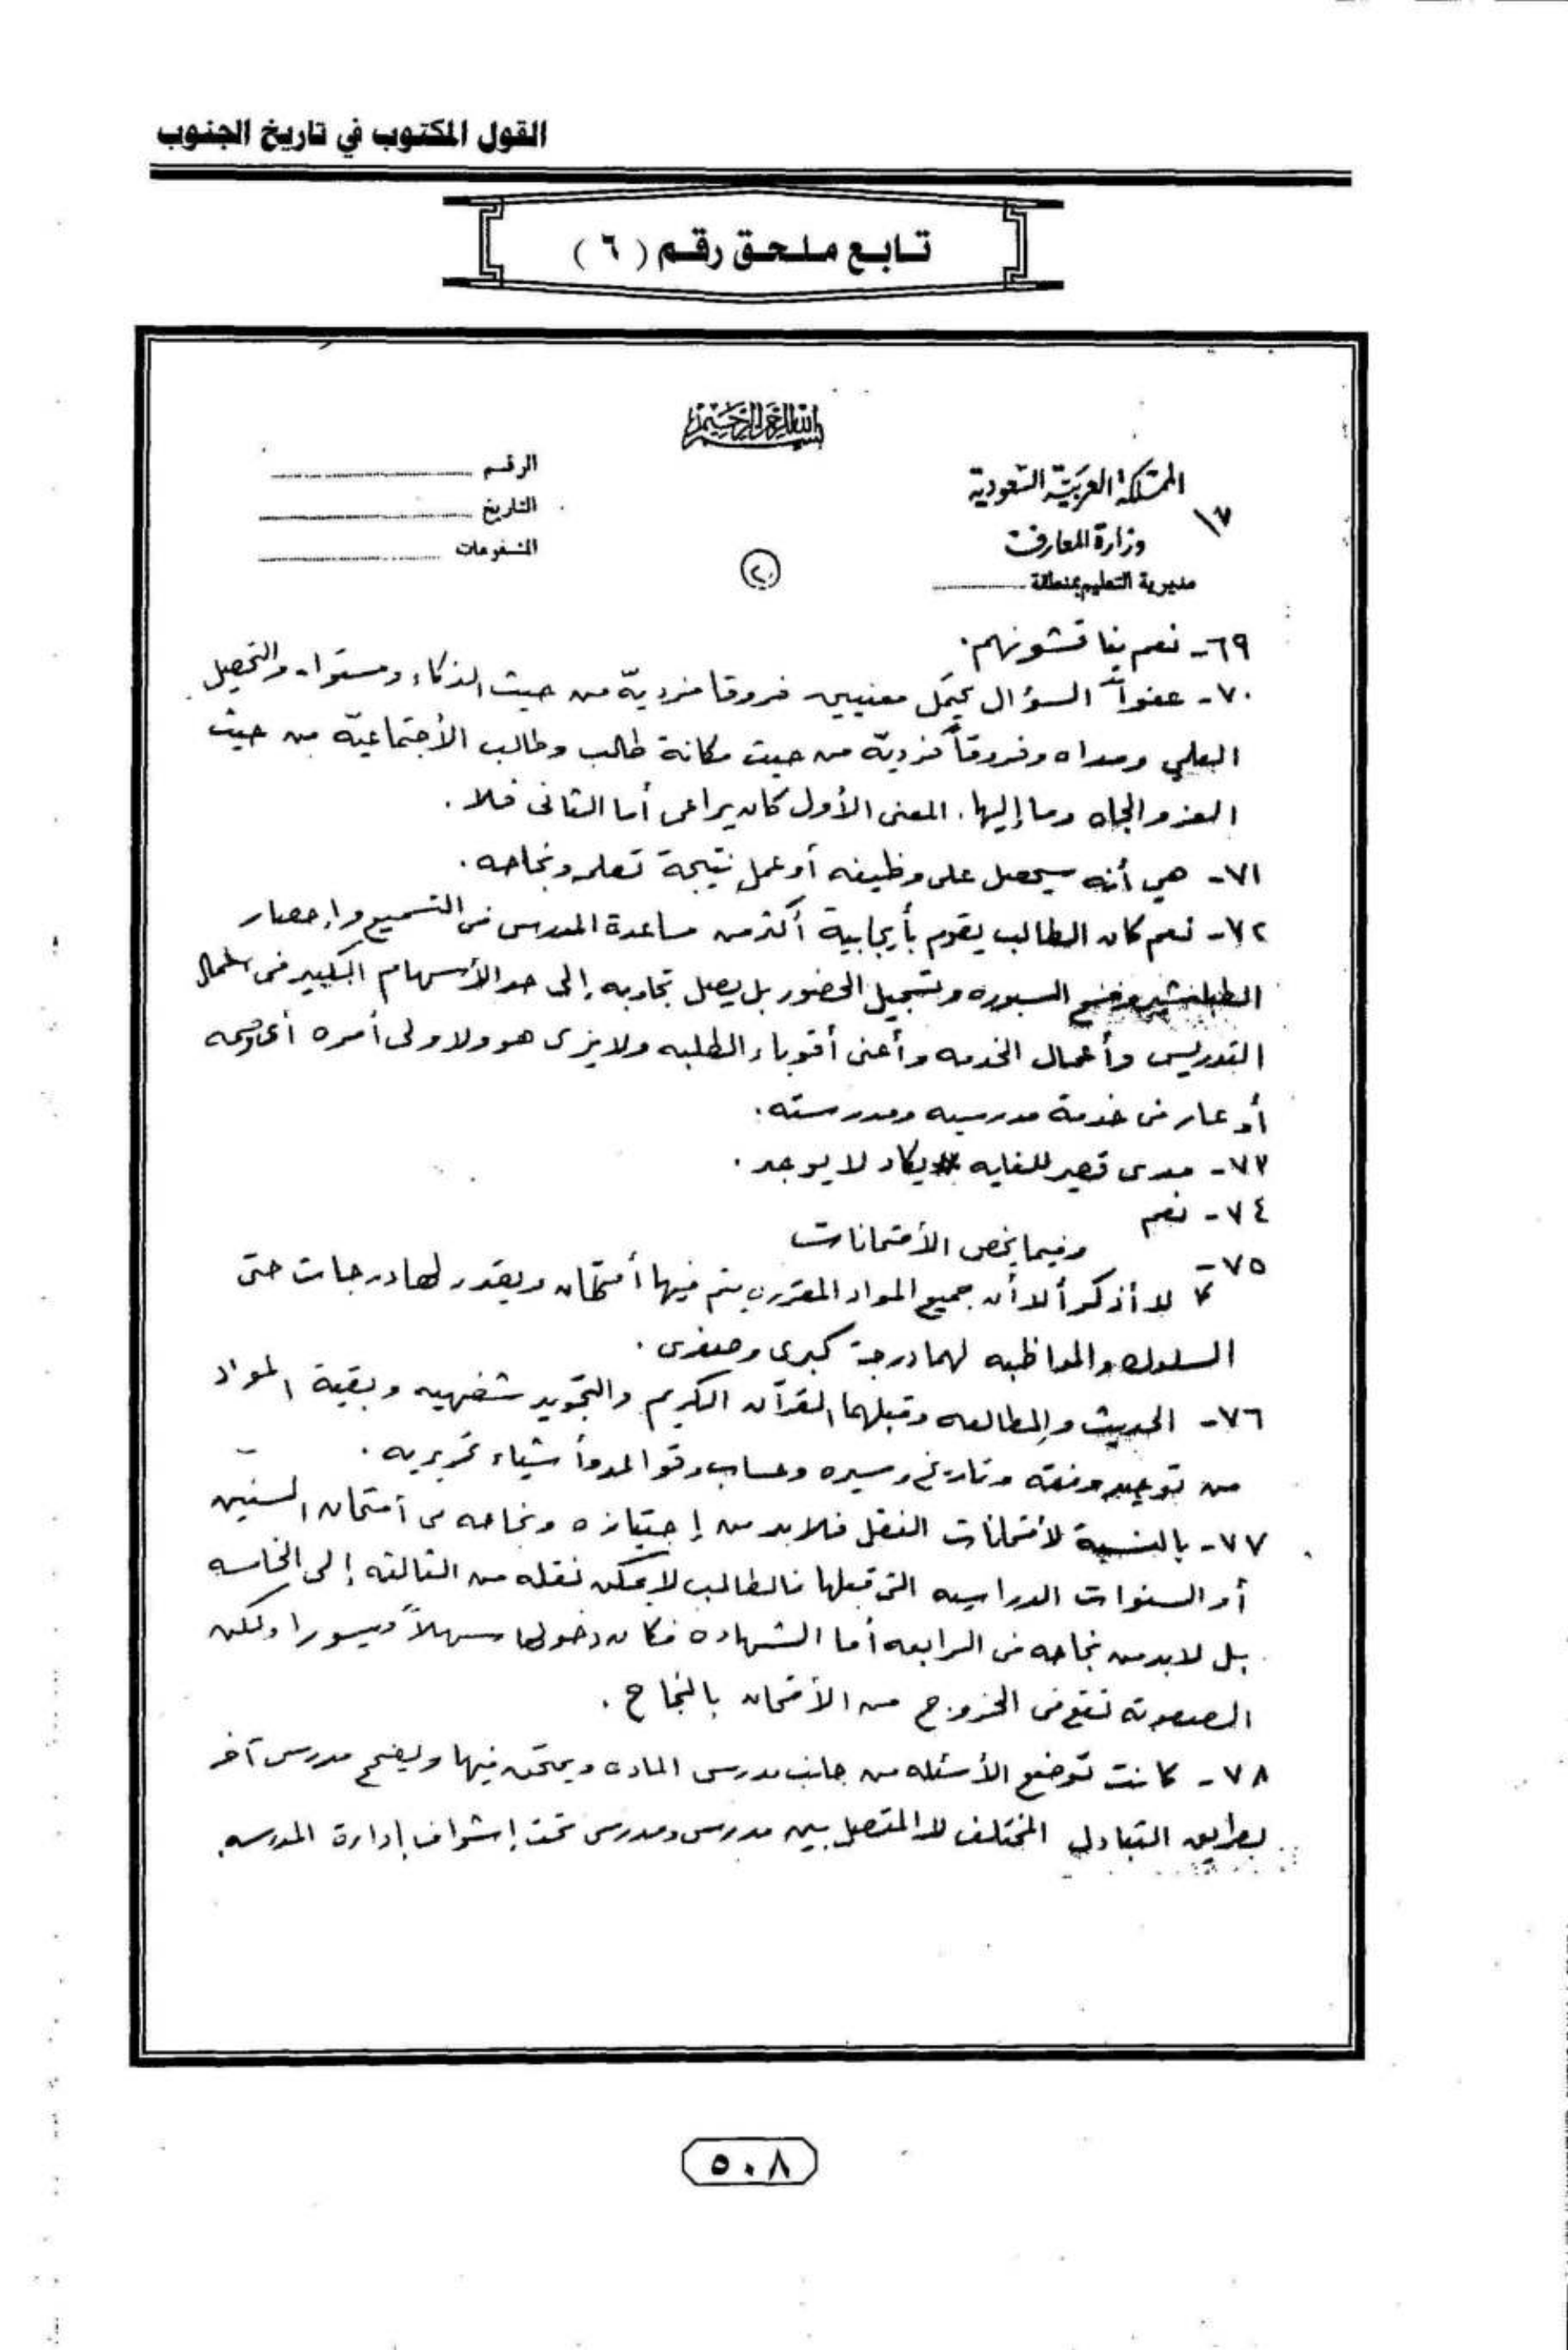 القول المكتوب في تاريخ الجنوب
تابع ملحق رقم (٦)
بسم الله الرحمن الرحيم
المملكة العربية السعودية
وزارة المعارف
مديرية التعليم بمنطقة
١٧
الرقم
التاريخ
المشفوعات
٢٠
٦٩- نعم يناقشونهم.
٧٠- عفواً السؤال يحتمل معنيين فروقا فرديّة من حيث الذكاء ومستواه والتحصيل
العلمي ومداه وفروقاً فرديّة من حيث مكانة طالب وطالب الأجتماعيّة من حيث
العز والجاه وما إليها. المعنى الأول كان يراعى أما الثانى فلا.
٧١- هي أنه سيحصل على وظيفه أو عمل نتيجة تعلمه ونجاحه.
٧٢- نعم كان الطالب يقوم بأيجابية أكثر من مساعدة المدرس فى التسميع وإحضار
الطباشير ومسح السبوره وتسجيل الحضور بل يصل تجاوبه إلى حد الأسهام الكبير فى أعمال
التدريس وأعمال الخدمه وأعنى أقوياء الطلبه ولا يرى هو ولا ولى أمره أى
أو عار فى خدمة مدرسيه ومدرسته.
٧٣- مدى قصير للغايه يكاد لا يوجد.
٧٤- نعم
وفيما يخص الأمتحانات
٧٥-
لا أذكر ألا أن جميع المواد المقرره يتم فيها أمتحان ويقدر لها درجات حتى
السلوك والمواظبه لهما درجة كبرى وصغرى.
٧٦- الحديث والمطالعه وقبلهما القرآن الكريم والتجويد شفهيه وبقية المواد
من توحيد وفقه وتاريخ وسيره وحساب وقواعد وأشياء تحريريه.
٧٧- بالنسبة لأمتحانات النقل فلابد من إجتيازه ونجاحه فى أمتحان السنتين
أو السنوات الدراسيه التى قبلها فالطالب لا يمكن نقله من الثالثه إلى الخامسه
بل لابد من نجاحه فى الرابعه أما الشهاده فكان دخولها سهلاً ميسورا ولكن
الصعوبه تقع فى الخروج من الأمتحان بالنجاح.
٧٨- كانت توضع الأسئله من جانب مدرس الماده ويمتحن فيها ويصحح مدرس آخر
بطريق التبادل المختلف لا المتصل بين مدرس ومدرس تحت إشراف إدارة المدرسه.
٥٠٨